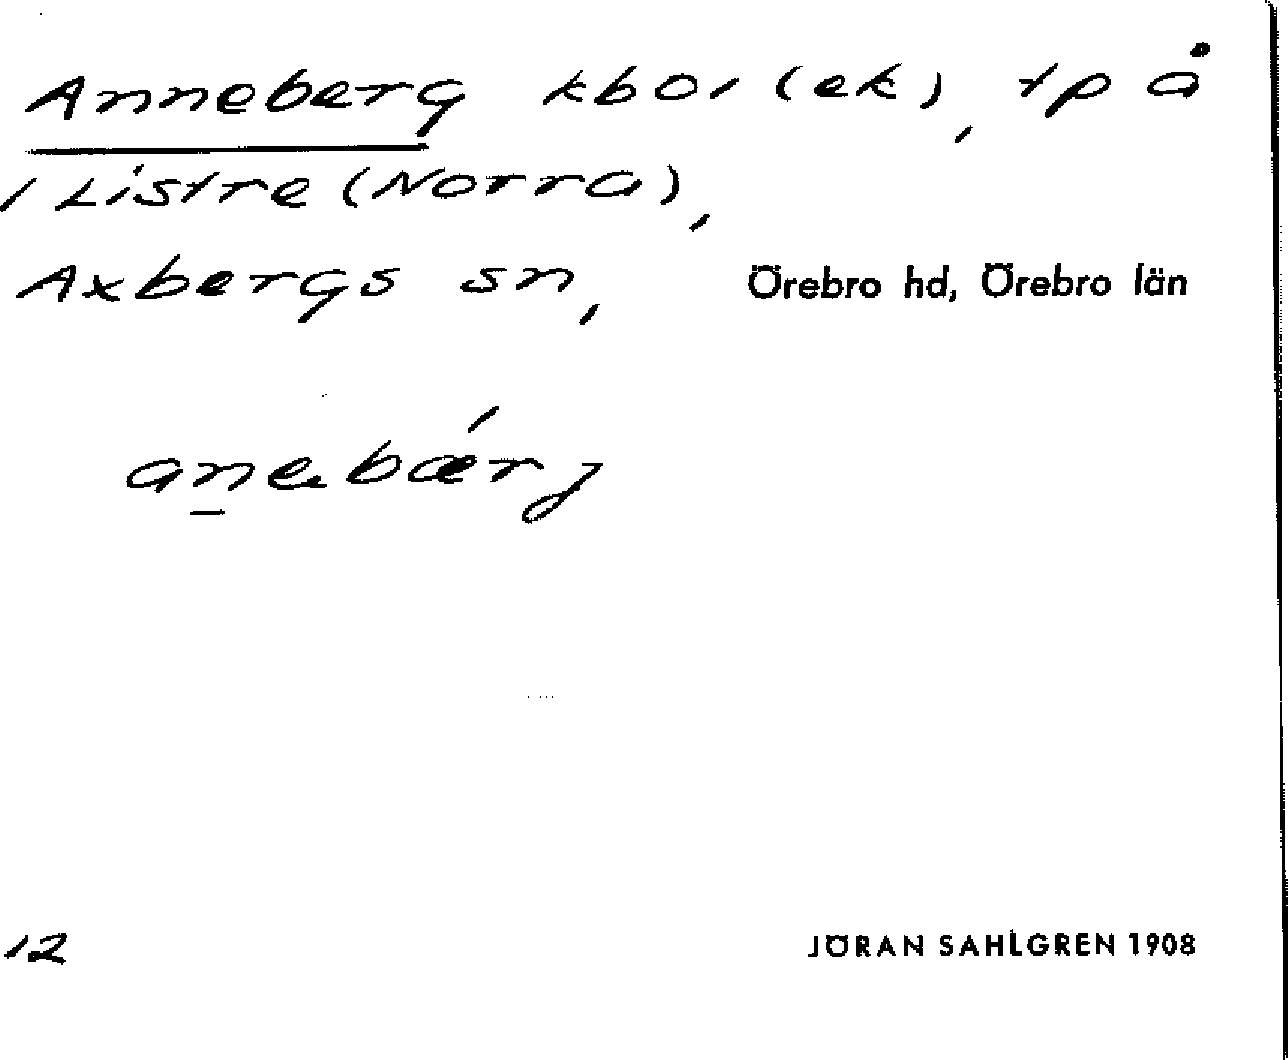 Anneberg kbol (ek), tp å
1 Listre (Norra),
Axbergs sn, Örebro hd, Örebro län
anebǽrj
12 JÖRAN SAHLGREN 1908